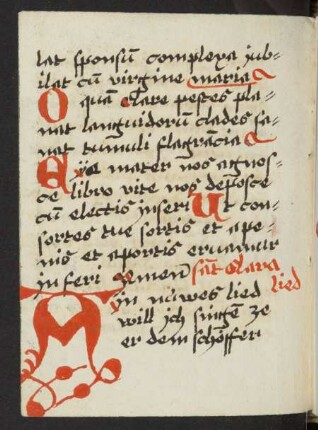 lat sponsū complexa jub-
ilat cū virgine maria
O quā clare pestes pla-
nat languidorum clades sa-
nat tumuli flagrācia
Eya mater nos agnos-
ce libro vite nos deposce
cū electis inseri Ut con-
sortes tue sortis et a pe-
nis et a portis eruamur
inferi Amen sāt clara lied
in nuwes lied
will ich singē ze
er dem schöffer